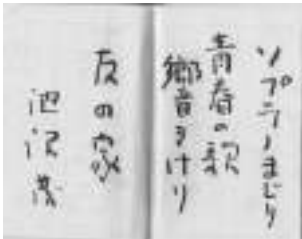 ソプラノまじり
青春の歌
郷音をけり
友の家
池沢茂